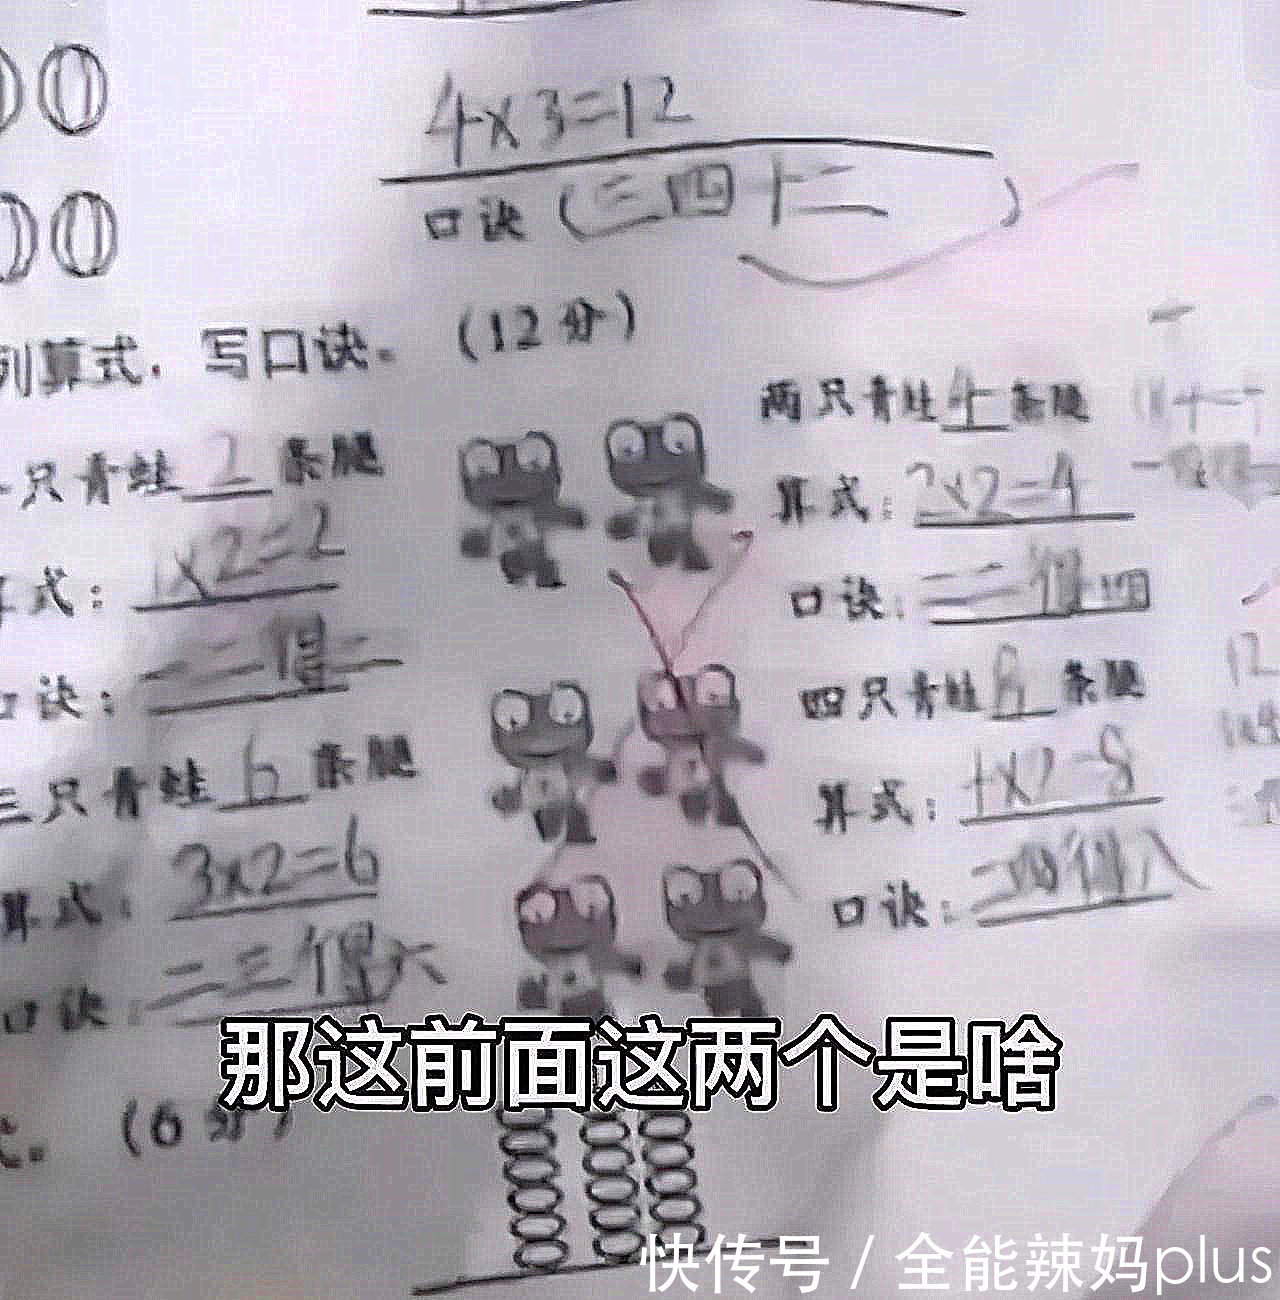 4×3=12
口诀（三四十二）
列算式，写口诀。（12分）
只青蛙2条腿
式：1×2=2
口诀：一二得二
三只青蛙6条腿
算式：3×2=6
口诀：二三得六
两只青蛙4条腿
算式：2×2=4
口诀：二二得四
四只青蛙8条腿
算式：4×2=8
口诀：二四得八
那这前面这两个是啥
（6分）
快传号／全能辣妈plus